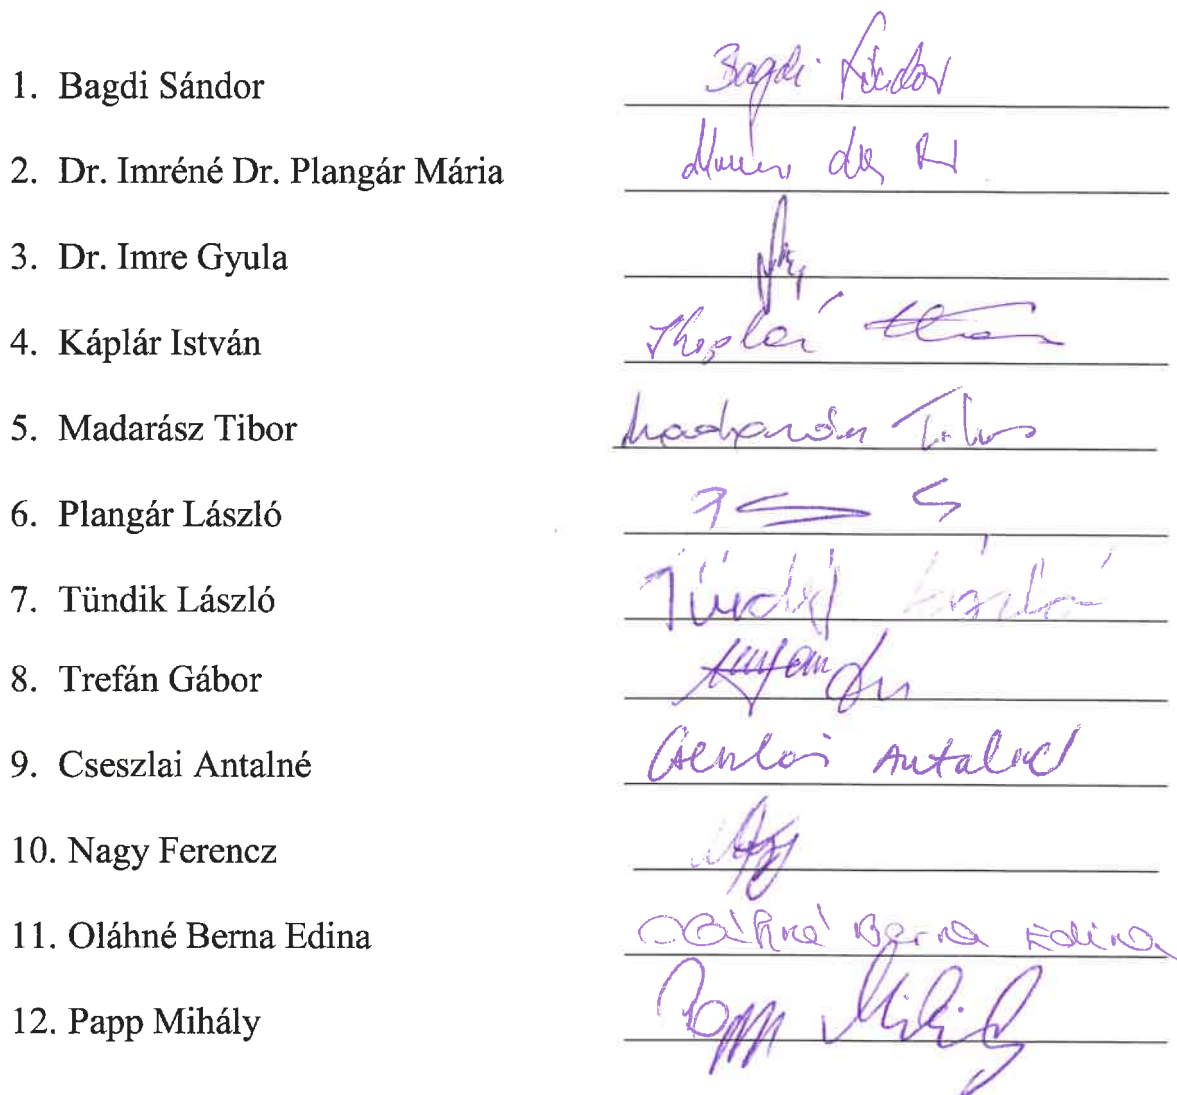 1. Bagdi Sándor Bagdi Sándor
2. Dr. Imréné Dr. Plangár Mária
3. Dr. Imre Gyula
4. Káplár István Káplár
5. Madarász Tibor Madarász Tibor
6. Plangár László
7. Tündik László Tündik László
8. Trefán Gábor
9. Cseszlai Antalné Cseszlai Antalné
10. Nagy Ferencz
11. Oláhné Berna Edina Oláhné Berna Edina
12. Papp Mihály Papp Mihály